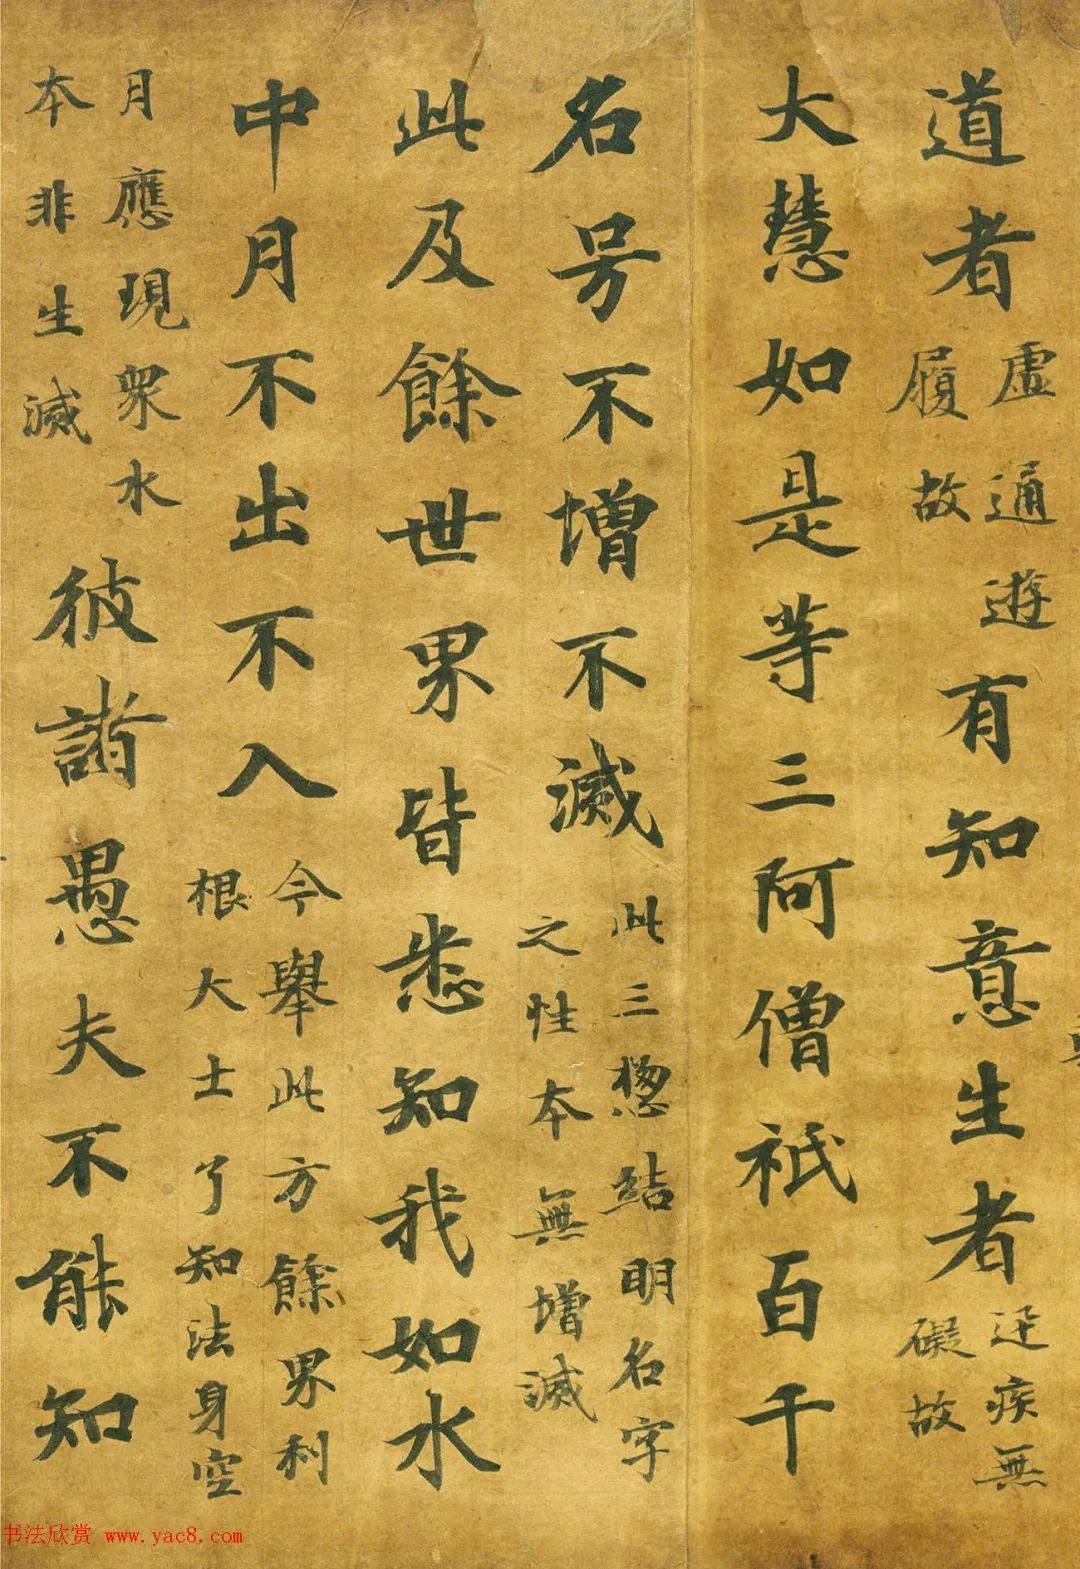 道者虛通遊履故有知意生者迅疾無礙故
大慧如是等三阿僧祇百千
名号不增不滅此三惣結明名字之性本無增滅
此及餘世界皆悉知我如水
中月不出不入今舉此方餘界利根大士了知法身空
月應現衆水本非生滅彼諸愚夫不能知
书法欣赏 www.yac8.com